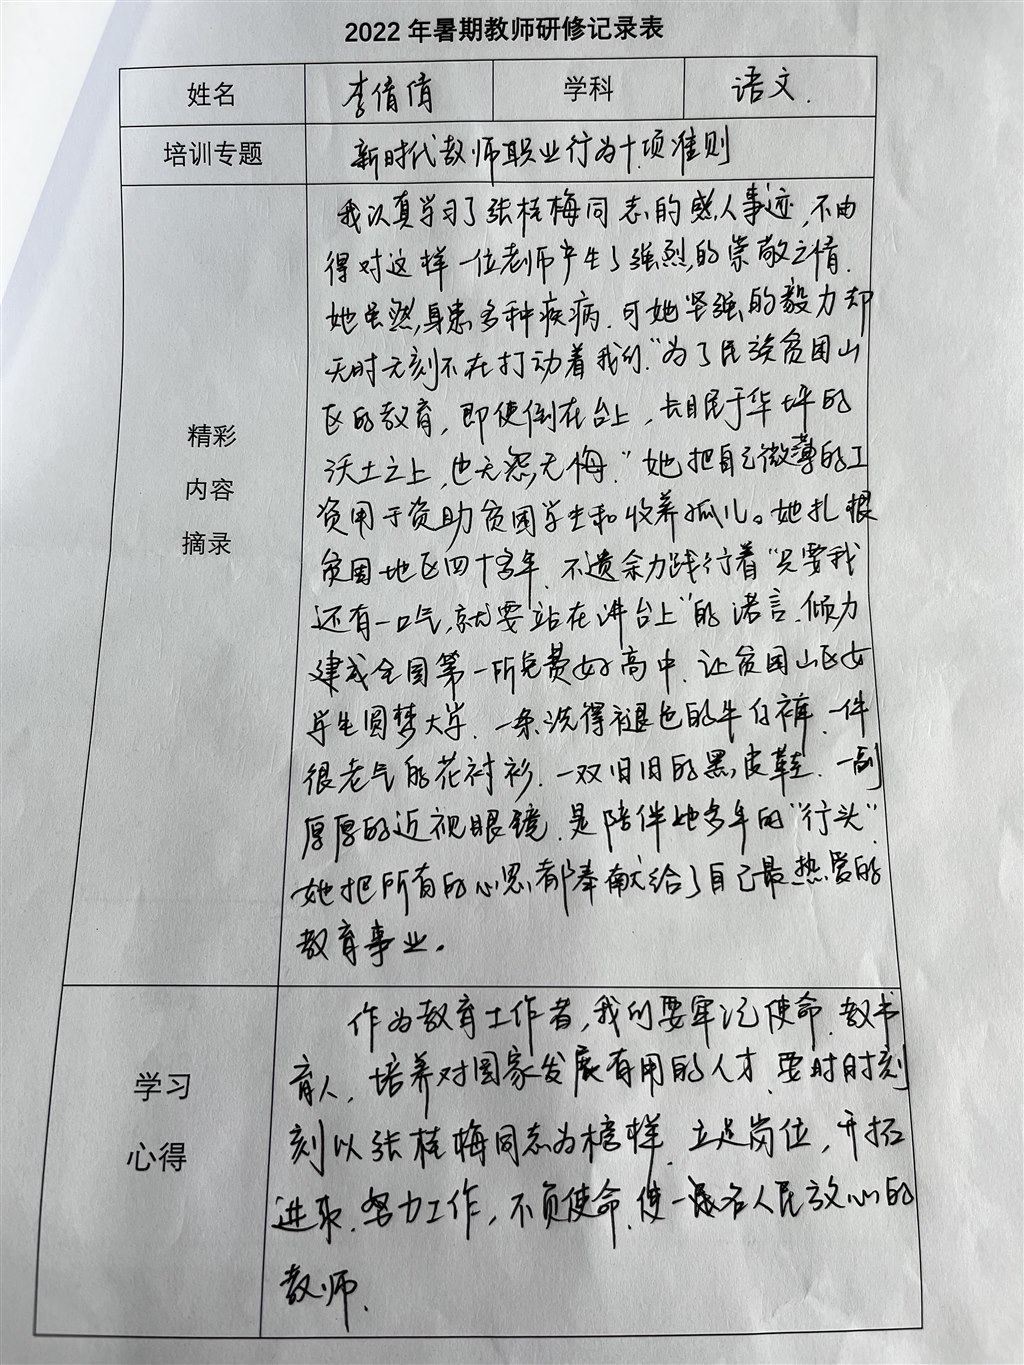 2022 年暑期教师研修记录表
姓名 李倩倩 学科 语文.
培训专题 新时代教师职业行为十项准则
精彩
内容
摘录
我认真学习了张桂梅同志的感人事迹,不由
得对这样一位老师产生了强烈的崇敬之情.
她虽然身患多种疾病.可她坚强的毅力却
无时无刻不在打动着我们."为了民族贫困山
区的教育,即使倒在台上,长眠于华坪的
沃土之上,也无怨无悔."她把自己微薄的工
资用于资助贫困学生和收养孤儿。她扎根
贫困地区四十多年.不遗余力践行着"只要我
还有一口气,就要站在讲台上"的诺言.倾力
建成全国第一所免费女子高中.让贫困山区女
学生圆梦大学.一条洗得褪色的牛仔裤.一件
很老气的花衬衫.一双旧旧的黑皮鞋.一副
厚厚的近视眼镜.是陪伴她多年的"行头".
她把所有的心思都奉献给了自己最热爱的
教育事业.
学习
心得
作为教育工作者,我们要牢记使命.教书
育人.培养对国家发展有用的人才.要时时刻
刻以张桂梅同志为榜样.立足岗位,开拓
进取.努力工作,不负使命.使一名人民放心的
教师.